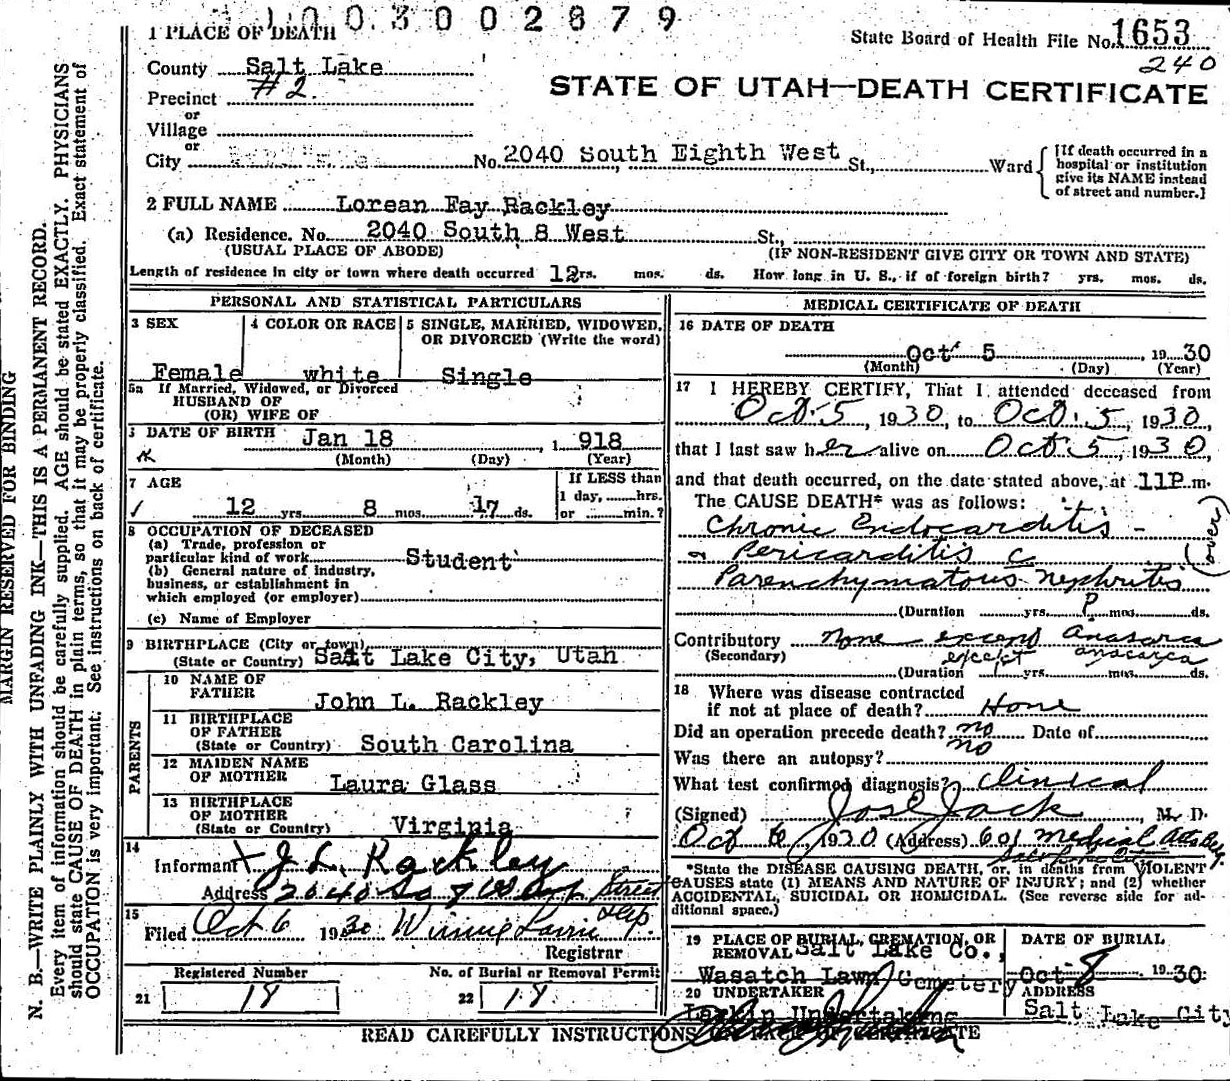 1003002879
1 PLACE OF DEATH
State Board of Health File No. 1653
240
County Salt Lake
Precinct #2.
or
Village
or
City
No. 2040 South Eighth West St., Ward
[If death occurred in a hospital or institution give its NAME instead of street and number.]
STATE OF UTAH—DEATH CERTIFICATE
2 FULL NAME Lorean Fay Rackley
(a) Residence. No. 2040 South 8 West St.,
(USUAL PLACE OF ABODE) (IF NON-RESIDENT GIVE CITY OR TOWN AND STATE)
Length of residence in city or town where death occurred 12rs. mos. ds. How long in U. S., if of foreign birth? yrs. mos. ds.
PERSONAL AND STATISTICAL PARTICULARS
3 SEX
Female
4 COLOR OR RACE
white
5 SINGLE, MARRIED, WIDOWED,
OR DIVORCED (Write the word)
Single
5a If Married, Widowed, or Divorced
HUSBAND OF
(OR) WIFE OF
DATE OF BIRTH Jan 18, 1918
(Month) (Day) (Year)
7 AGE
12 yrs 8 mos. 17 ds.
If LESS than
1 day, hrs.
or min.?
8 OCCUPATION OF DECEASED
(a) Trade, profession or
particular kind of work Student
(b) General nature of industry,
business, or establishment in
which employed (or employer)
(c) Name of Employer
9 BIRTHPLACE (City or town)
(State or Country) Salt Lake City, Utah
PARENTS
10 NAME OF
FATHER John L. Rackley
11 BIRTHPLACE
OF FATHER
(State or Country) South Carolina
12 MAIDEN NAME
OF MOTHER Laura Glass
13 BIRTHPLACE
OF MOTHER
(State or Country) Virginia
14
Informant J L. Rackley
Address 2040 So 8 West Street
15
Filed Oct 6 1930 Winnie Dep.
Registrar
Registered Number
21 18
No. of Burial or Removal Permit
22 18
MEDICAL CERTIFICATE OF DEATH
16 DATE OF DEATH
Oct 5, 1930
(Month) (Day) (Year)
17 I HEREBY CERTIFY, That I attended deceased from
Oct. 5, 1930, to Oct. 5, 1930,
that I last saw her alive on Oct. 5, 1930,
and that death occurred, on the date stated above, at 11P m.
The CAUSE DEATH* was as follows:
Chronic Endocarditis -
& Pericarditis c (over)
Parenchymatous nephritis
(Duration yrs. ? mos. ds.
Contributory none except anasarca
(Secondary) except anasarca
(Duration yrs. mos. ds.
18 Where was disease contracted
if not at place of death? Home
Did an operation precede death? no Date of
Was there an autopsy? no
What test confirmed diagnosis? clinical
(Signed) Jos E Jack, M. D.
Oct 6, 1930 (Address) 601 Medical Arts Bldg
Salt Lake City
*State the DISEASE CAUSING DEATH, or, in deaths from VIOLENT
CAUSES state (1) MEANS AND NATURE OF INJURY; and (2) whether
ACCIDENTAL, SUICIDAL OR HOMICIDAL. (See reverse side for ad-
ditional space.)
19 PLACE OF BURIAL, CREMATION, OR
REMOVAL Salt Lake Co.,
Wasatch Lawn Cemetery
DATE OF BURIAL
Oct 8 1930
20 UNDERTAKER
Larkin Undertaking
ADDRESS
Salt Lake City
READ CAREFULLY INSTRUCTIONS ON BACK OF CERTIFICATE
MARGIN RESERVED FOR BINDING
N. B.—WRITE PLAINLY WITH UNFADING INK—THIS IS A PERMANENT RECORD.
Every item of information should be carefully supplied. AGE should be stated EXACTLY. PHYSICIANS
should state CAUSE OF DEATH in plain terms, so that it may be properly classified. Exact statement of
OCCUPATION is very important. See instructions on back of certificate.